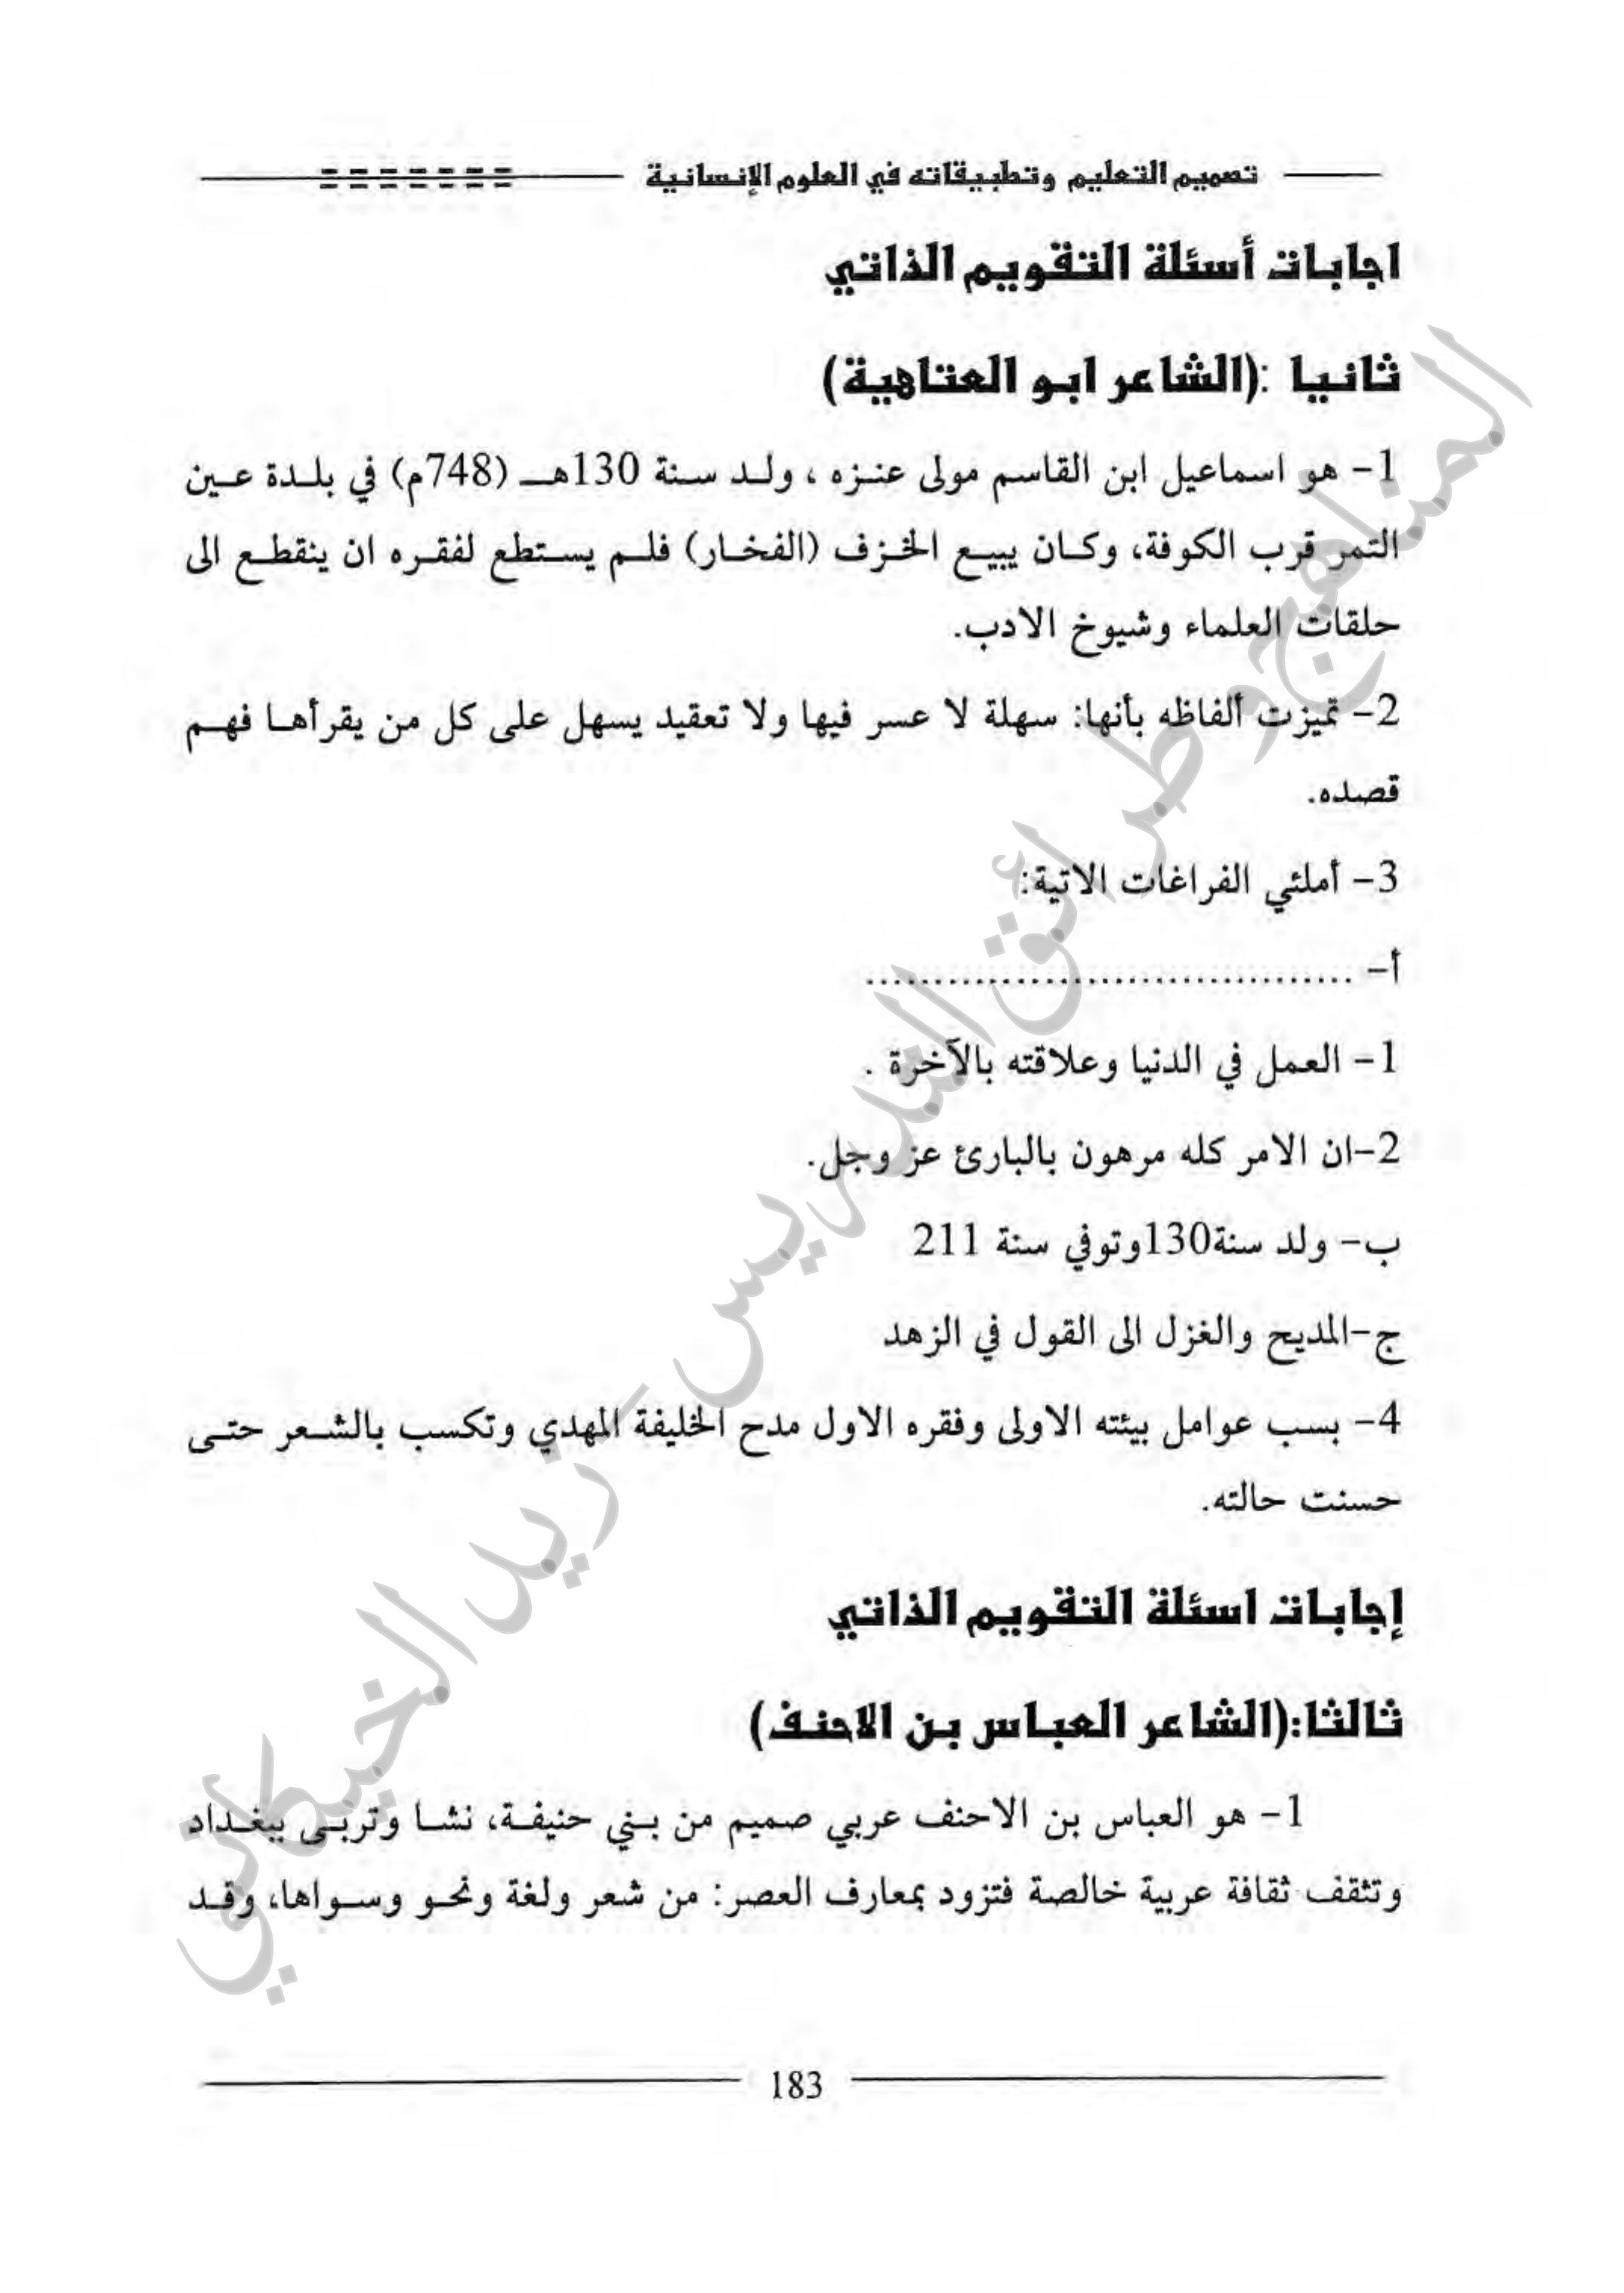 تصميم التعليم وتطبيقاته في العلوم الإنسانية
اجابات أسئلة التقويم الذاتي
ثانيا :(الشاعر ابو العتاهية)
1- هو اسماعيل ابن القاسم مولى عنزه ، ولد سنة 130هـ (748م) في بلدة عين
التمر قرب الكوفة، وكان يبيع الخزف (الفخار) فلم يستطع لفقره ان ينقطع الى
حلقات العلماء وشيوخ الادب.
2- تميزت ألفاظه بأنها: سهلة لا عسر فيها ولا تعقيد يسهل على كل من يقرأها فهم
قصده.
3- أملئي الفراغات الاتية:
أ- ....................................
1- العمل في الدنيا وعلاقته بالآخرة .
2-ان الامر كله مرهون بالبارئ عز وجل.
ب- ولد سنة130وتوفي سنة 211
ج-المديح والغزل الى القول في الزهد
4- بسب عوامل بيئته الاولى وفقره الاول مدح الخليفة المهدي وتكسب بالشعر حتى
حسنت حالته.
إجابات اسئلة التقويم الذاتي
ثالثا:(الشاعر العباس بن الاحنف)
1- هو العباس بن الاحنف عربي صميم من بني حنيفة، نشا وتربى ببغداد
وتثقف ثقافة عربية خالصة فتزود بمعارف العصر: من شعر ولغة ونحو وسواها، وقد
183
المناهج وطرائق التدريس - زيد الخيكاني